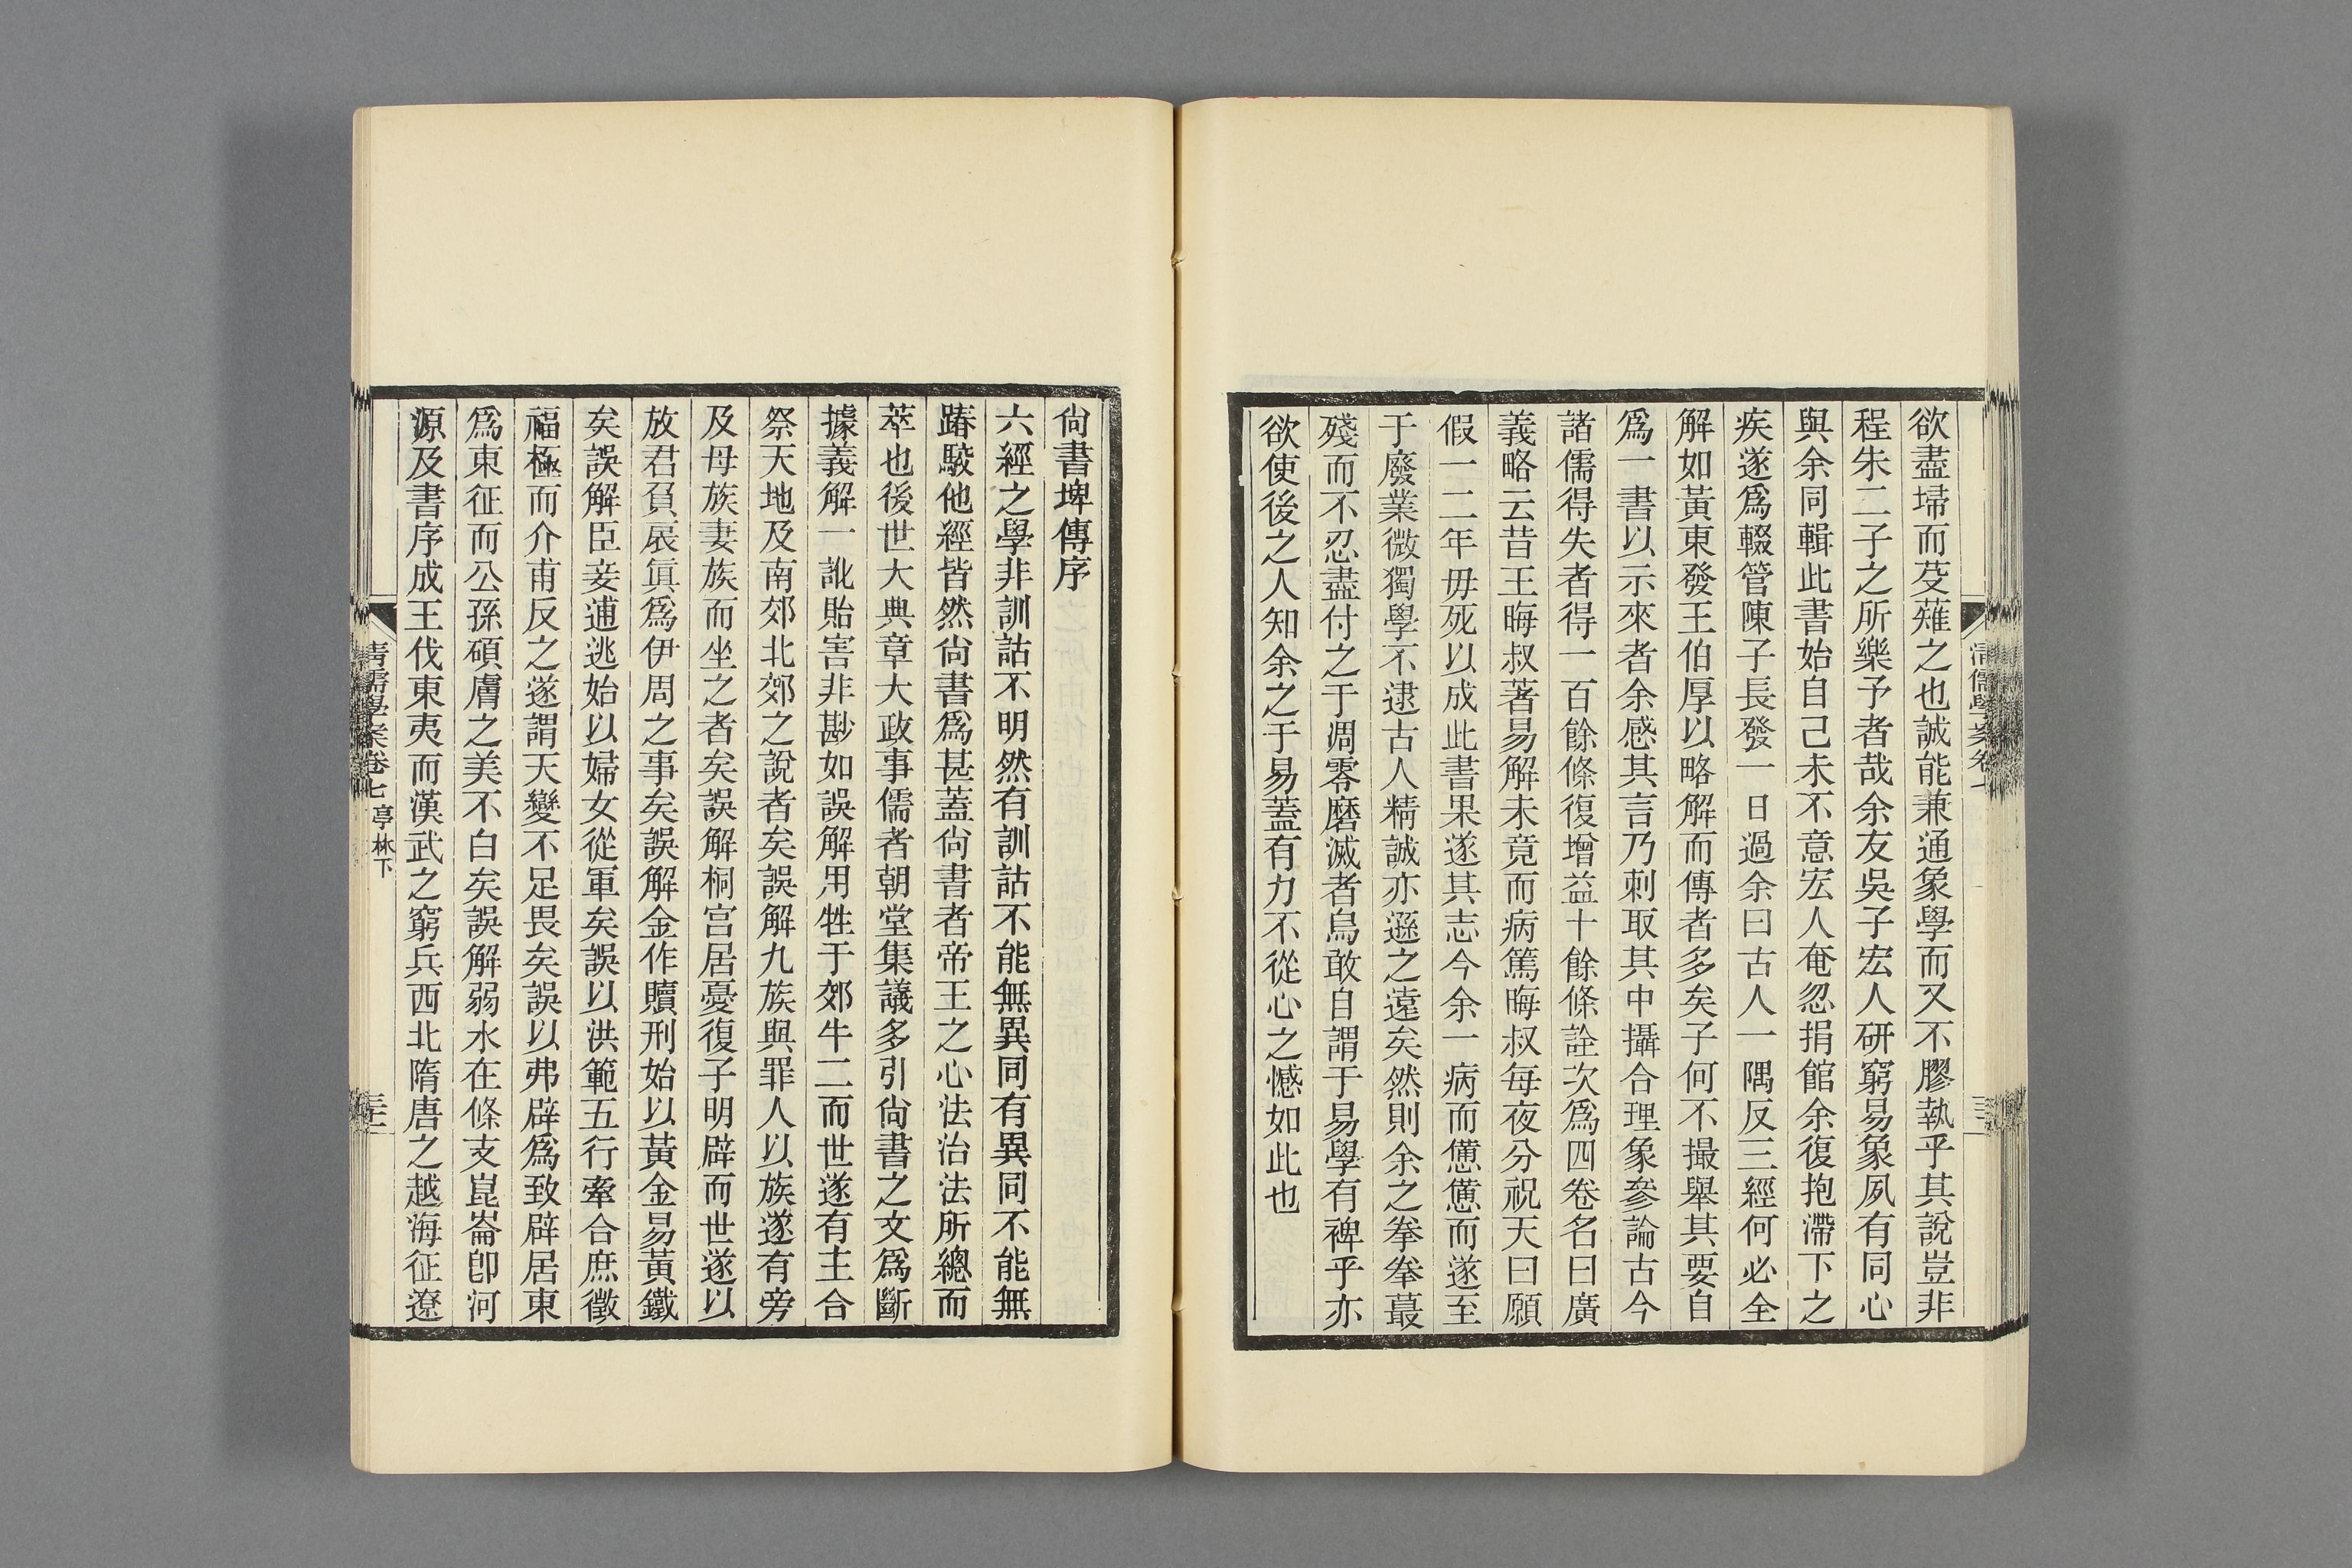 欲盡埽而芟薙之也誠能兼通象學而又不膠執乎其說豈非
程朱二子之所樂予者哉余友吳子宏人研窮易象夙有同心
與余同輯此書始自己未不意宏人奄忽捐館余復抱滯下之
疾遂爲輟管陳子長發一日過余曰古人一隅反三經何必全
解如黃東發王伯厚以略解而傳者多矣子何不撮舉其要自
爲一書以示來者余感其言乃刺取其中攝合理象參論古今
諸儒得失者得一百餘條復增益十餘條詮次爲四卷名曰廣
義略云昔王晦叔著易解未竟而病篤晦叔每夜分祝天曰願
假一二年毋死以成此書果遂其志今余一病而憊憊而遂至
于廢業微獨學不逮古人精誠亦遜之遠矣然則余之拳拳蕞
殘而不忍盡付之于凋零磨滅者烏敢自謂于易學有裨乎亦
欲使後之人知余之于易蓋有力不從心之憾如此也
尙書埤傳序
六經之學非訓詁不明然有訓詁不能無異同有異同不能無
踳駮他經皆然尙書爲甚蓋尙書者帝王之心法治法所總而
萃也後世大典章大政事儒者朝堂集議多引尙書之文爲斷
據義解一訛貽害非尠如誤解用牲于郊牛二而世遂有主合
祭天地及南郊北郊之說者矣誤解九族與罪人以族遂有旁
及母族妻族而坐之者矣誤解桐宮居憂復子明辟而世遂以
放君負扆眞爲伊周之事矣誤解金作贖刑始以黃金易黃鐵
矣誤解臣妾逋逃始以婦女從軍矣誤以洪範五行牽合庶徵
福極而介甫反之遂謂天變不足畏矣誤以弗辟爲致辟居東
爲東征而公孫碩膚之美不白矣誤解弱水在條支崑崙卽河
源及書序成王伐東夷而漢武之窮兵西北隋唐之越海征遼
清儒學案卷七 亭林下